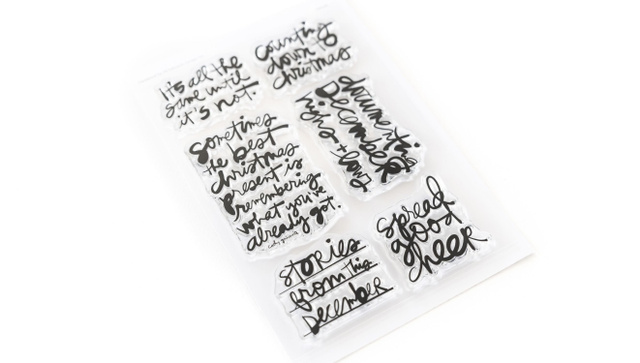 it's all the
same until
it's not.
counting
down to
christmas
Sometimes
the best
christmas
present is
remembering
what you've
already got.
documenting
December
highs + lows
spread
good
cheer
stories
from this
December